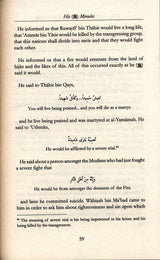 His (ﷺ) Miracles
He informed us that Ruwayfi' bin Thābit would live a long life,
that 'Ammār bin Yāsir would be killed by the transgressing group,
that this nation shall divide into sects and that they would fight
each other.
He informed us that a fire would emanate from the land of
Ḥijāz and the likes of this. All of this occurred exactly as he (ﷺ)
said it would.
He said to Thābit bin Qays,
You will live being praised... and you will die as a martyr.
and he lived being praised and was martyred at al-Yamāmah. He
said to 'Uthmān,
He would be afflicted by a severe trial.
He said about a person amongst the Muslims who had just fought
a severe fight that
He would be from amongst the denizens of the Fire.
and later he committed suicide. Wābiṣah bin Ma'bad came to
him in order to ask him about righteousness and sin upon which
The meaning of severe trial is his being imprisoned in his house and his
being killed by the transgressors.
59